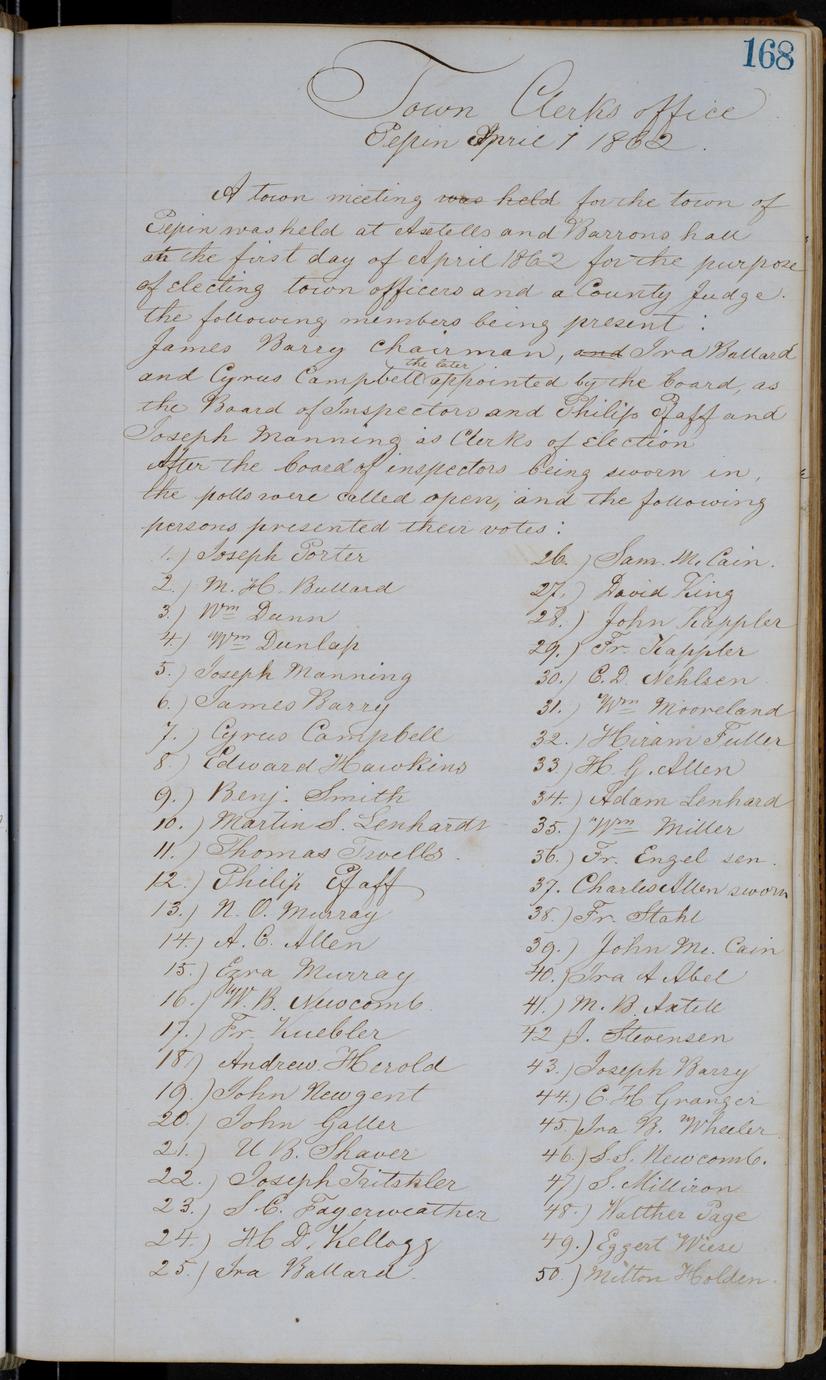 168
Town Clerks office
Pepin April 1 1862.
A town meeting was held for the town of
Pepin was held at Axtells and Barrons hall
on the first day of April 1862 for the purpose
of electing town officers and a County Judge.
the following members being present:
James Barry Chairman, and Ira Ballard
the later
and Cyrus Campbell appointed by the board, as
the Board of Inspectors and Philip Pfaff and
Joseph Manning as Clerks of Election
After the board of inspectors being sworn in,
the polls were called open, and the following
persons presented their votes:
1.) Joseph Porter
2.) M. H. Bullard
3.) Wm Dunn
4.) Wm Dunlap
5.) Joseph Manning
6.) James Barry
7.) Cyrus Campbell
8.) Edward Hawkins
9.) Benj. Smith
10.) Martin S. Lenhardt
11.) Thomas Twells.
12.) Philip Pfaff
13.) N. O. Murray
14.) A. C. Allen
15.) Ezra Murray
16.) W. B. Newcomb.
17.) Fr. Kuebler
18.) Andrew Herold
19.) John Newgent
20.) John Galler
21.) U. B. Shaver
22.) Joseph Tritshler
23.) S. C. Fayerweather
24.) H. D. Kellogg
25.) Ira Ballard.
26.) Sam. Mc. Cain.
27.) David King
28.) John Kappler
29.) Fr. Kappler
30.) C. D. Nehlsen
31.) Wm Mooreland
32.) Hiram Fuller
33.) H. G. Allen
34.) Adam Lenhard
35.) Wm Miller
36.) Fr. Engel sen.
37. Charles Allen sworn
38.) Fr. Stahl
39.) John Mc. Cain
40.) Ira A Abel
41.) M. B. Axtell
42.) J. Stevensen
43.) Joseph Barry
44.) C. H. Granger
45.) Ira B. Wheeler
46.) S. S. Newcomb.
47.) S. Milliron
48.) Walther Page
49.) Eggert Wiese
50.) Milton Holden.